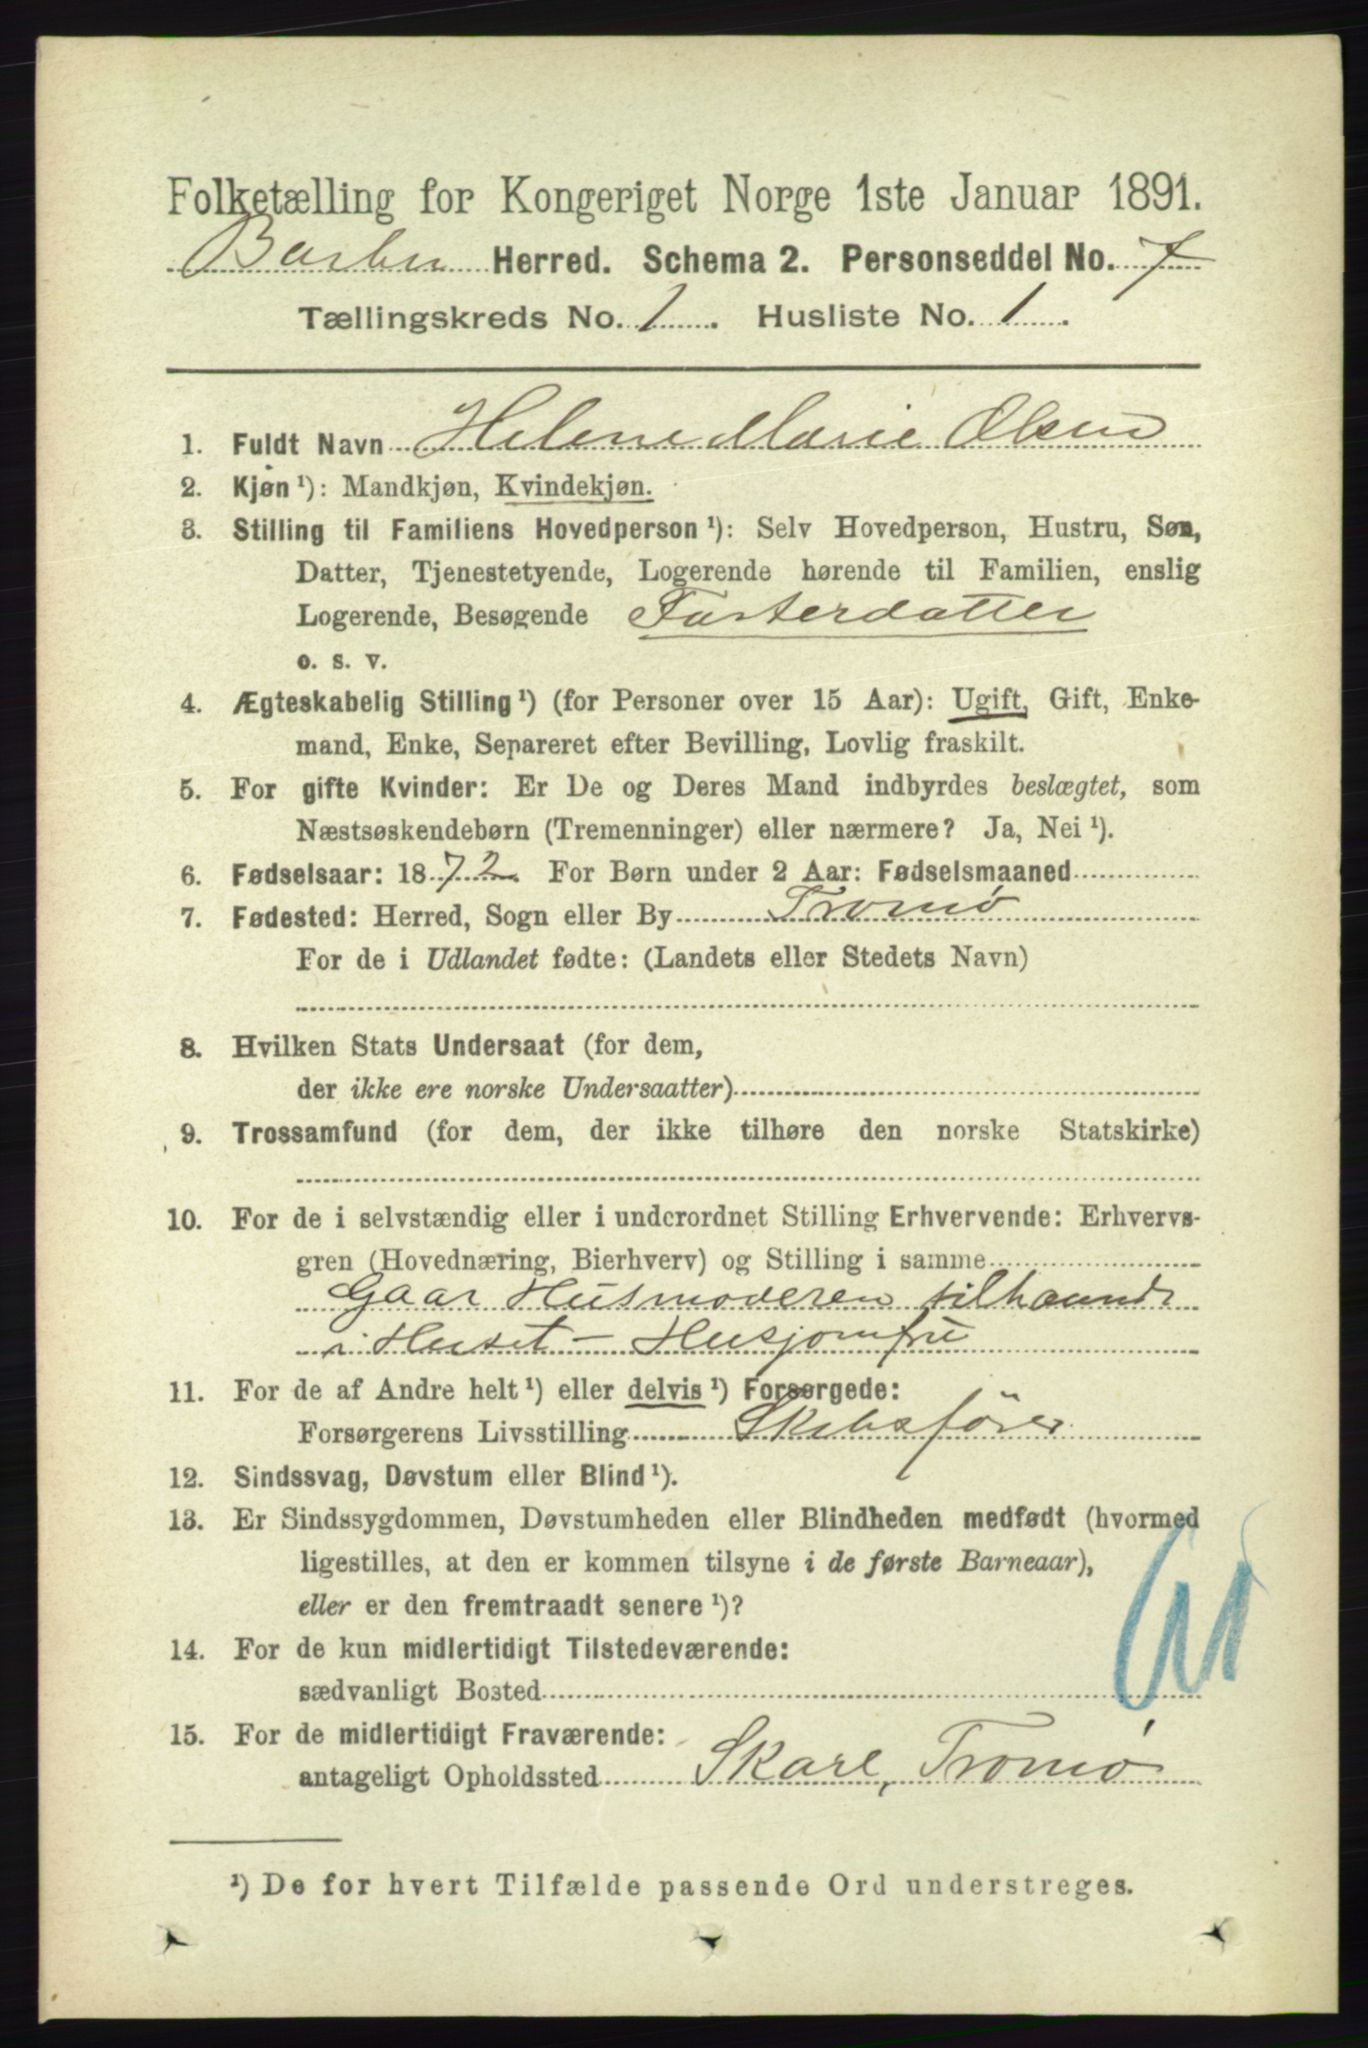 Folketælling for Kongeriget Norge 1ste Januar 1891.
Barbu Herred. Schema 2. Personseddel No. 7
Tællingskreds No. 1. Husliste No. 1.
1. Fuldt Navn Helene Marie Olsen
2. Kjøn ¹): Mandkjøn, Kvindekjøn.
3. Stilling til Familiens Hovedperson ¹): Selv Hovedperson, Hustru, Søn,
Datter, Tjenestetyende, Logerende hørende til Familien, enslig
Logerende, Besøgende Fosterdatter
o. s. v.
4. Ægteskabelig Stilling ¹) (for Personer over 15 Aar): Ugift, Gift, Enke-
mand, Enke, Separeret efter Bevilling, Lovlig fraskilt.
5. For gifte Kvinder: Er De og Deres Mand indbyrdes beslægtet, som
Næstsøskendebørn (Tremenninger) eller nærmere? Ja, Nei ¹).
6. Fødselsaar: 1872. For Børn under 2 Aar: Fødselsmaaned
7. Fødested: Herred, Sogn eller By Tromø
For de i Udlandet fødte: (Landets eller Stedets Navn)
8. Hvilken Stats Undersaat (for dem,
der ikke ere norske Undersaatter)
9. Trossamfund (for dem, der ikke tilhøre den norske Statskirke)
10. For de i selvstændig eller i underordnet Stilling Erhvervende: Erhvervs-
gren (Hovednæring, Bierhverv) og Stilling i samme
Gaar Husmoderen tilhaande
i Huset - Husjomfru
11. For de af Andre helt ¹) eller delvis ¹) Forsørgede:
Forsørgerens Livsstilling Skibsfører
12. Sindssvag, Døvstum eller Blind ¹).
13. Er Sindssygdommen, Døvstumheden eller Blindheden medfødt (hvormed
ligestilles, at den er kommen tilsyne i de første Barneaar),
eller er den fremtraadt senere ¹)?
14. For de kun midlertidigt Tilstedeværende:
sædvanligt Bosted
15. For de midlertidigt Fraværende:
antageligt Opholdssted Skare, Tromø
¹) De for hvert Tilfælde passende Ord understreges.